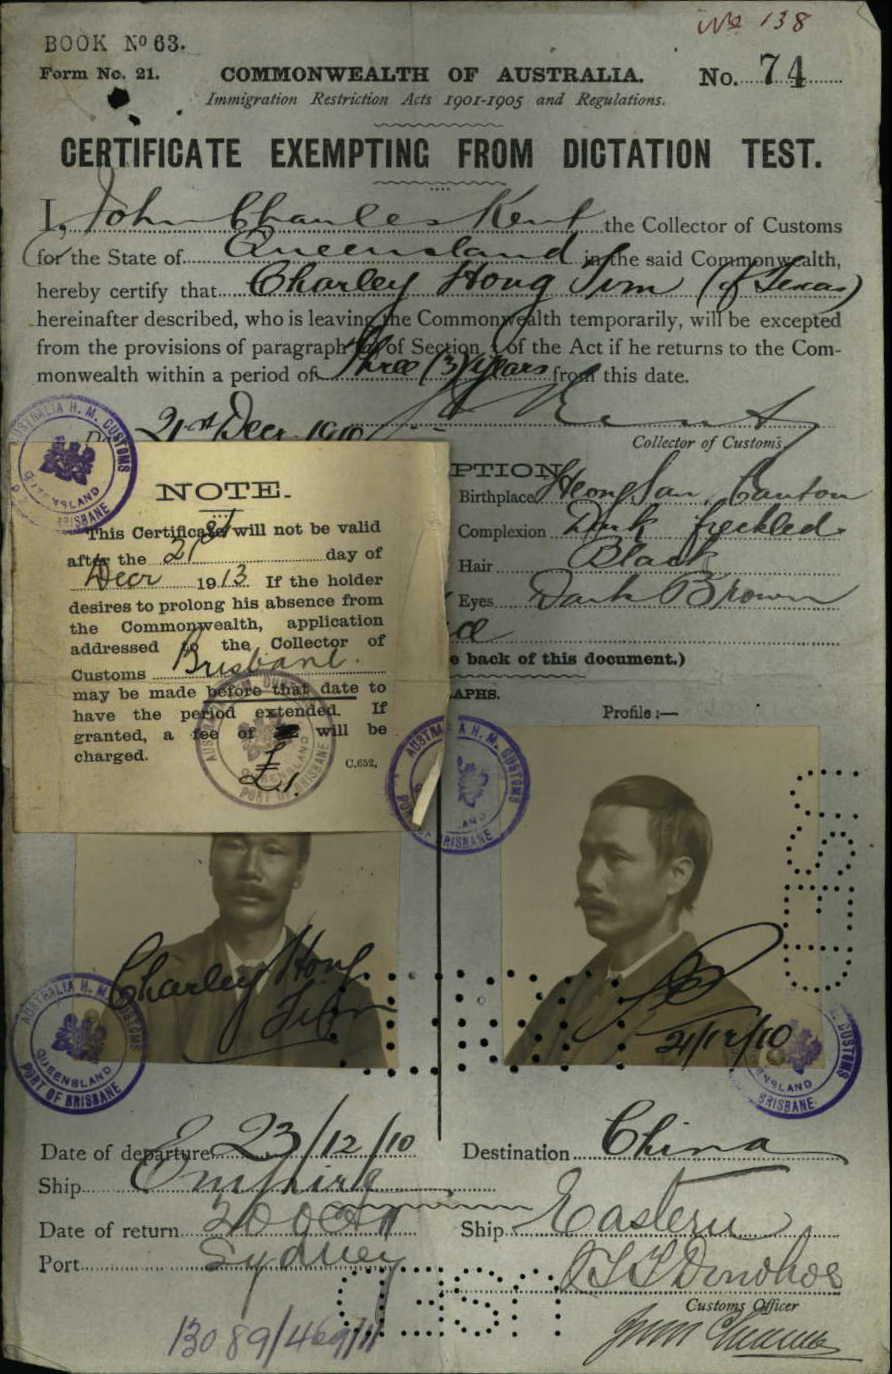 No 138
BOOK No 63.
Form No. 21.
COMMONWEALTH OF AUSTRALIA.
No. 74
Immigration Restriction Acts 1901-1905 and Regulations.
CERTIFICATE EXEMPTING FROM DICTATION TEST.
I, John Charles Kent the Collector of Customs
for the State of Queensland in the said Commonwealth,
hereby certify that Charley Hong Sim (of Texas)
hereinafter described, who is leaving the Commonwealth temporarily, will be excepted
from the provisions of paragraph of Section of the Act if he returns to the Com-
monwealth within a period of Three (3) years from this date.
21st Decr 1910
Kent
Collector of Customs
PTION
Birthplace Heong San, Canton
Complexion Dark freckled
Hair Black
Eyes Dark Brown
e back of this document.)
APHS.
Profile :—
NOTE.
This Certificate will not be valid
after the 21st day of
Decr 1913 If the holder
desires to prolong his absence from
the Commonwealth, application
addressed to the Collector of
Customs Brisbane.
may be made before that date to
have the period extended. If
granted, a fee of will be
charged.
£1.
C.652.
AUSTRALIA H. M. CUSTOMS
QUEENSLAND
PORT OF BRISBANE
AUSTRALIA H. M. CUSTOMS
PORT OF BRISBANE
AUSTRALIA H. M. CUSTOMS
QUEENSLAND
PORT OF BRISBANE
Charley Hong
Sim
21/12/10
AUSTRALIA H. M.
QUEENSLAND
PORT OF BRISBANE
CUSTOMS
BRISBANE
Date of departure 23/12/10
Destination China
Ship Empire
Date of return 20 Oct 11
Ship Eastern
Port Sydney
J T T Donohoe
Customs Officer
13089/469/11